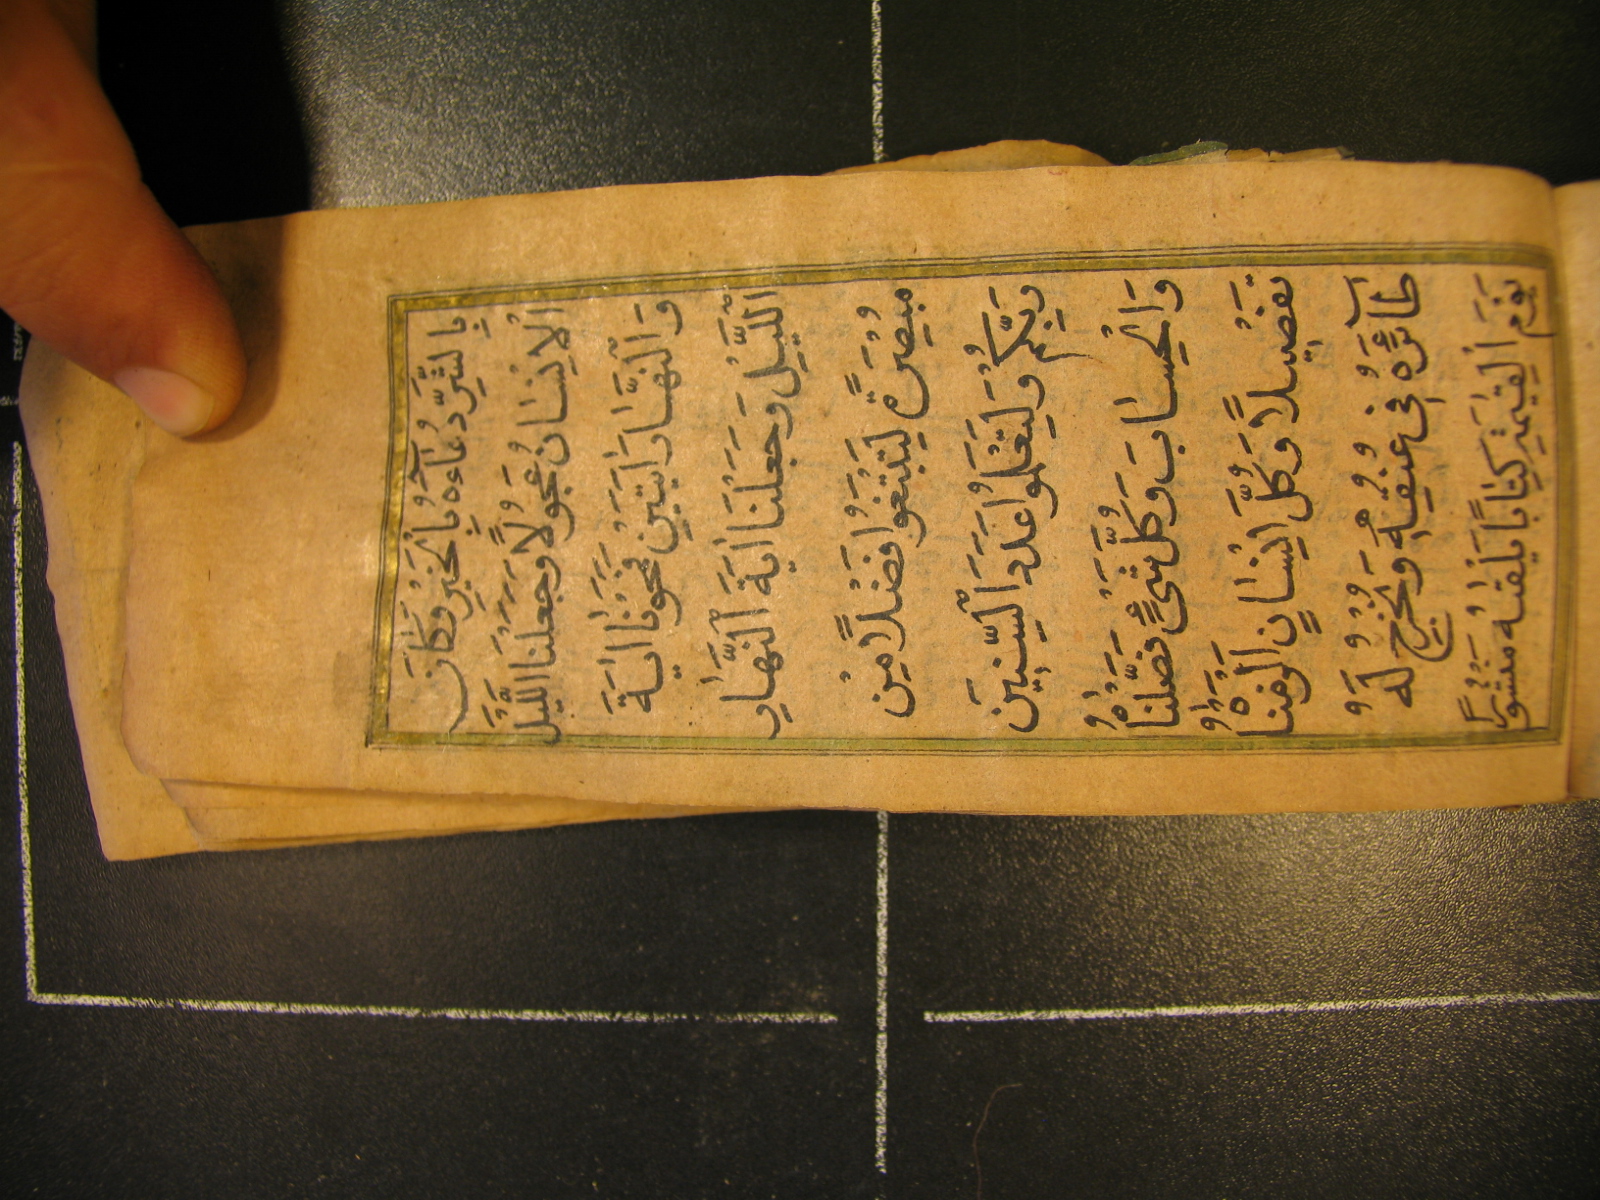 بِالشَّرِّ دُعَاءَهُ بِالْخَيْرِ وَكَانَ
الْاِنْسَانُ عَجُولًا وَجَعَلْنَا اللَّيْلَ
وَالنَّهَارَ اٰيَتَيْنِ فَمَحَوْنَا اٰيَةَ
اللَّيْلِ وَجَعَلْنَا اٰيَةَ النَّهَارِ
مُبْصِرَةً لِتَبْتَغُوا فَضْلًا مِنْ
رَبِّكُمْ وَلِتَعْلَمُوا عَدَدَ السِّنِينَ
وَالْحِسَابَ وَكُلَّ شَىْءٍ فَصَّلْنَاهُ
تَفْصِيلًا وَكُلَّ اِنْسَانٍ اَلْزَمْنَاهُ
طَائِرَهُ فِى عُنُقِهِ وَنُخْرِجُ لَهُ
يَوْمَ الْقِيٰمَةِ كِتَابًا يَلْقٰيهُ مَنْشُورًا